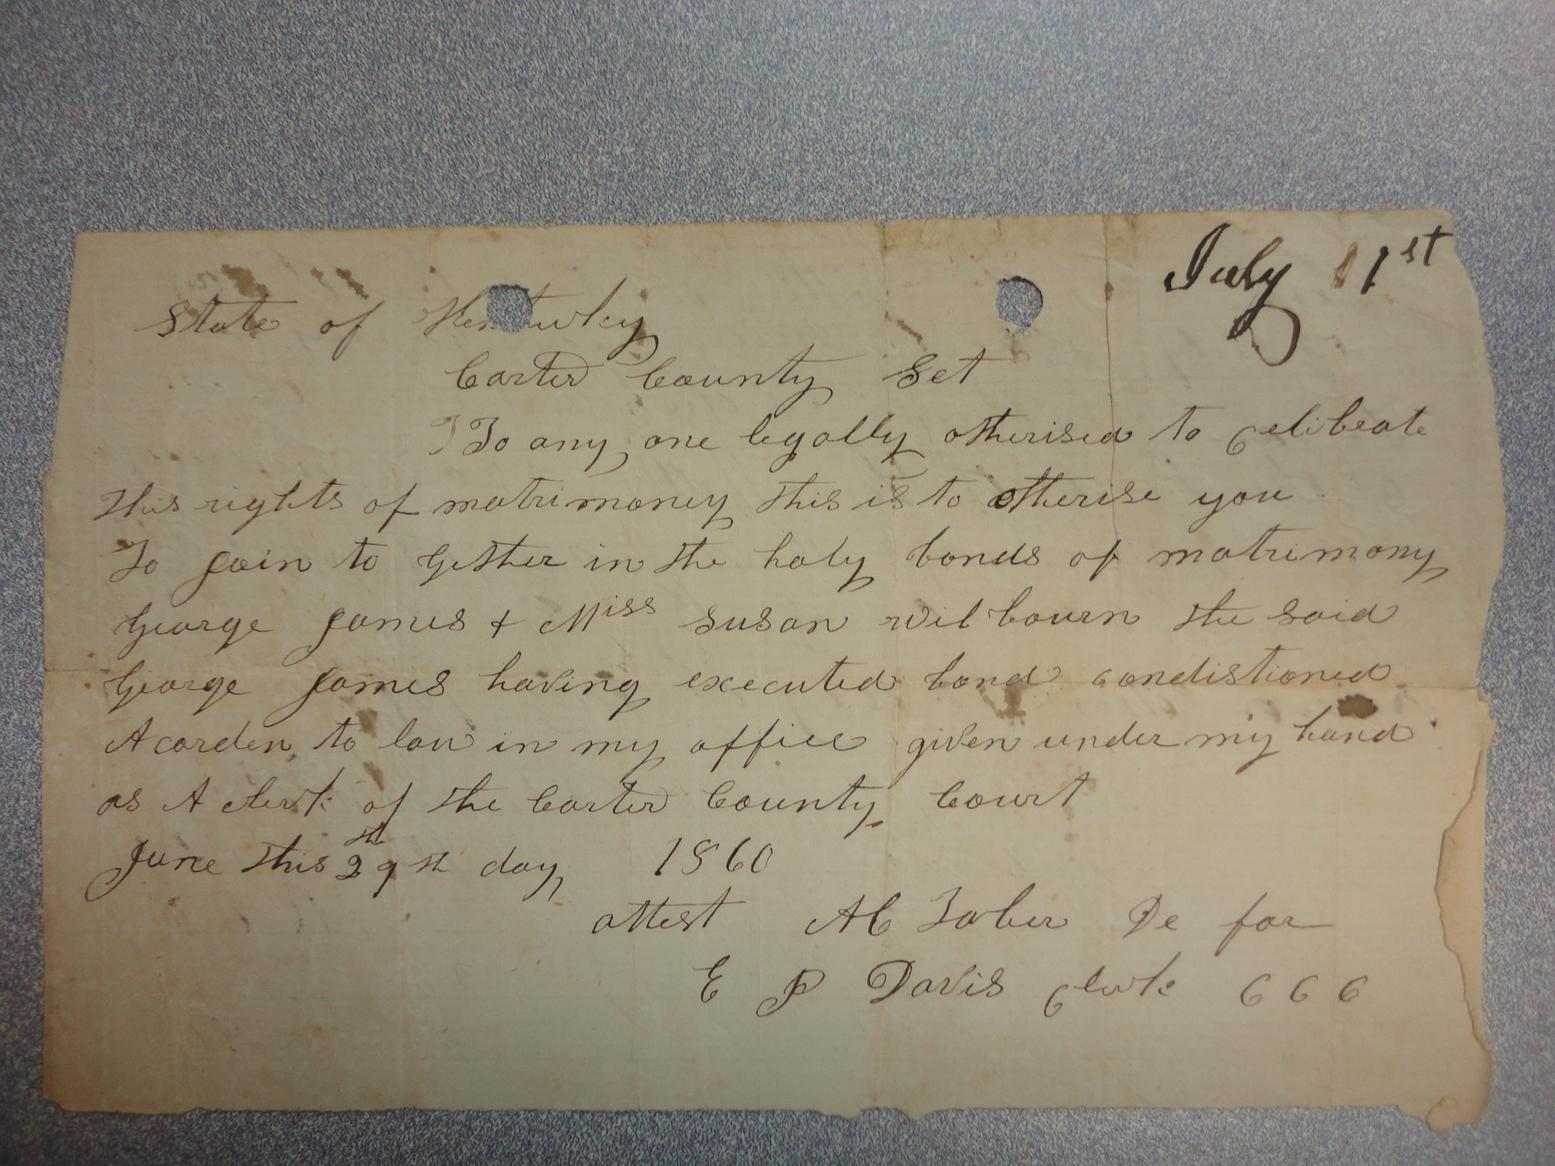 July 11st
State of Kentucky
Carter County Sct
To any one legally otherised to Celibrate
this rights of matrimoney this is to otherise you
To Join to gether in the holy bonds of matrimony
George James & Miss Susan Wilbourn the said
George James having executed bond condistioned
Acorden to law in my office given under my hand
as A clerk of the Carter County Court
June this 29st day 1860
attest AC Taber De for
E P Davis Clerk C C C